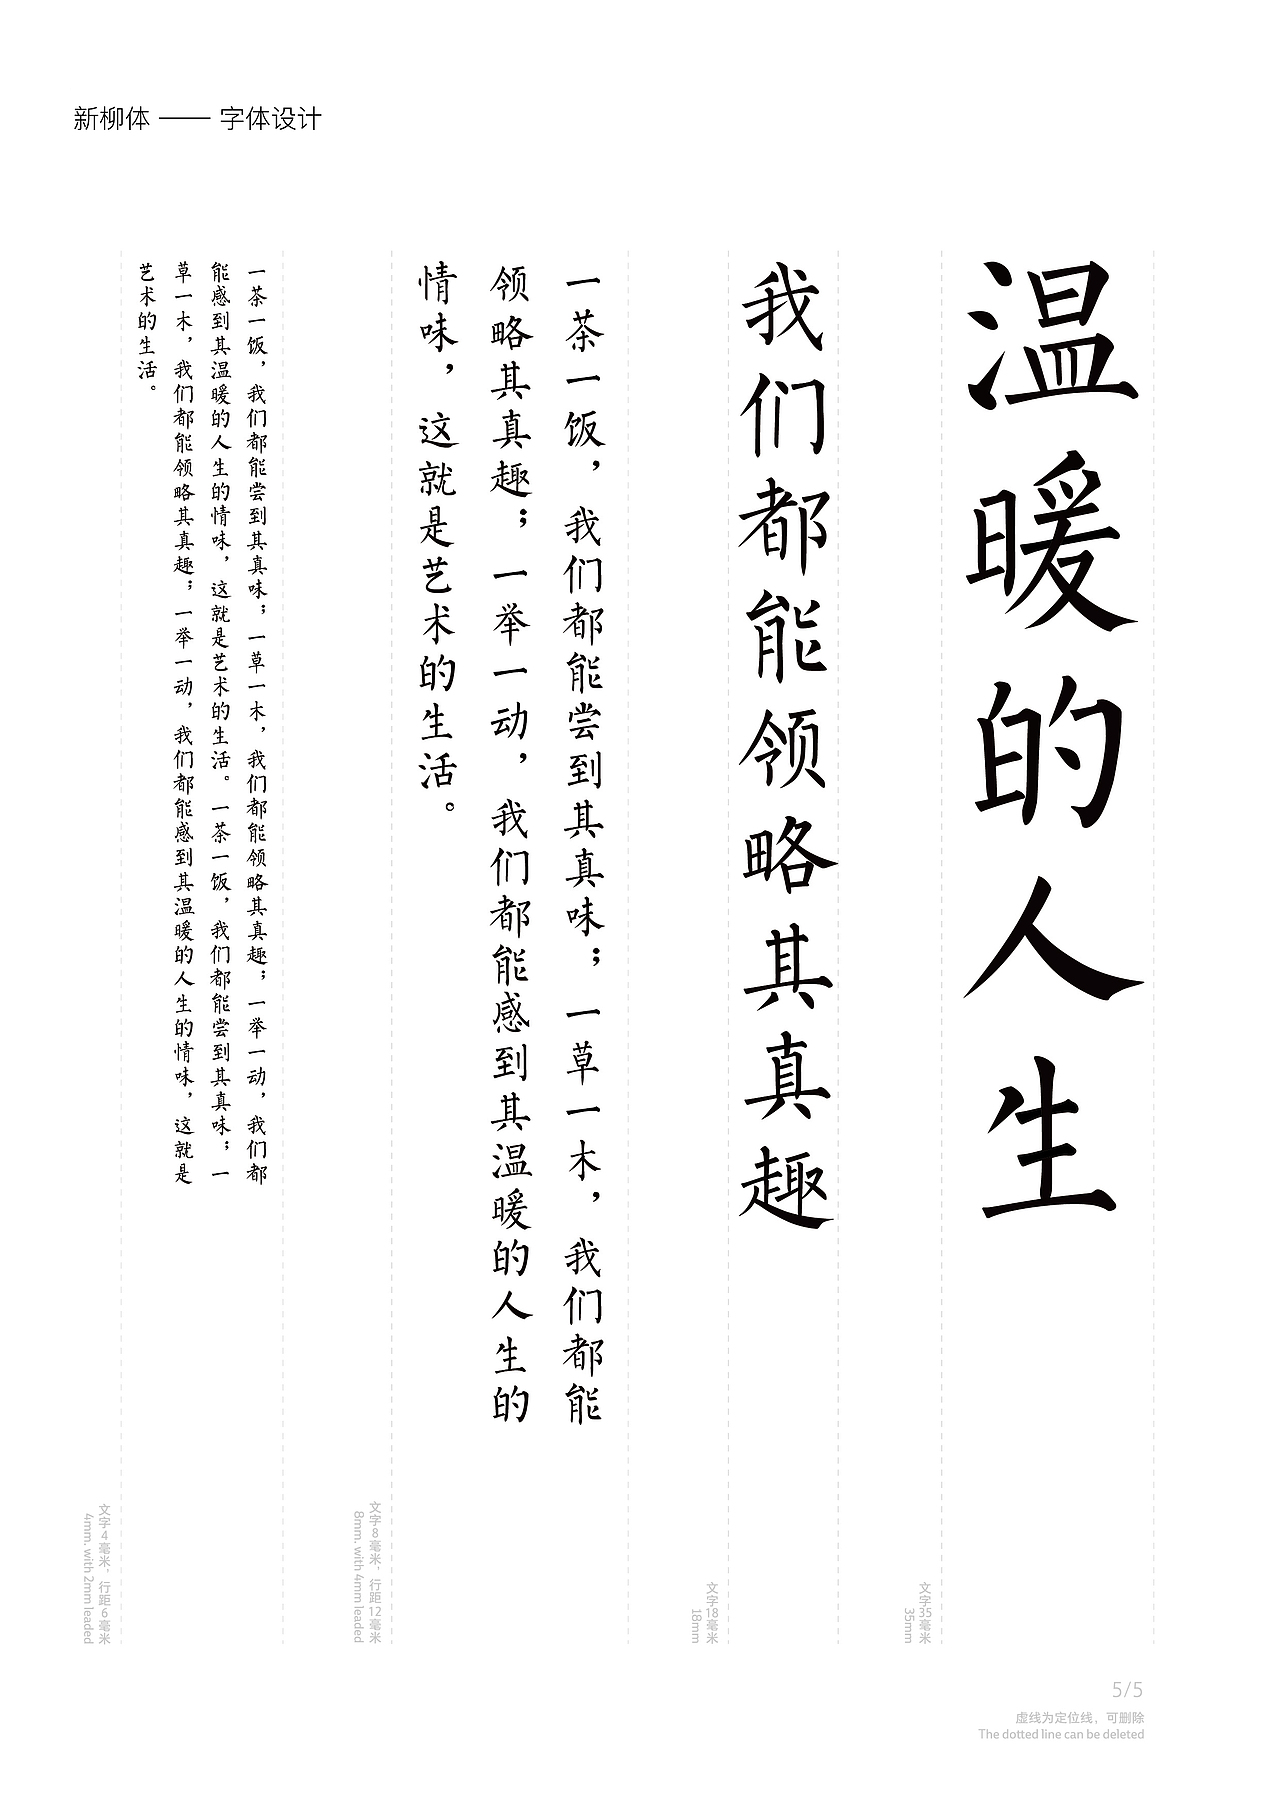 新柳体 —— 字体设计
温暖的人生
我们都能领略其真趣
一茶一饭，我们都能尝到其真味；一草一木，我们都能
领略其真趣；一举一动，我们都能感到其温暖的人生的
情味，这就是艺术的生活。
一茶一饭，我们都能尝到其真味；一草一木，我们都能领略其真趣；一举一动，我们都
能感到其温暖的人生的情味，这就是艺术的生活。一茶一饭，我们都能尝到其真味；一
草一木，我们都能领略其真趣；一举一动，我们都能感到其温暖的人生的情味，这就是
艺术的生活。
文字35毫米
35mm
文字18毫米
18mm
文字8毫米，行距12毫米
8mm. with 4mm leaded
文字4毫米，行距6毫米
4mm. with 2mm leaded
5/5
虚线为定位线，可删除
The dotted line can be deleted